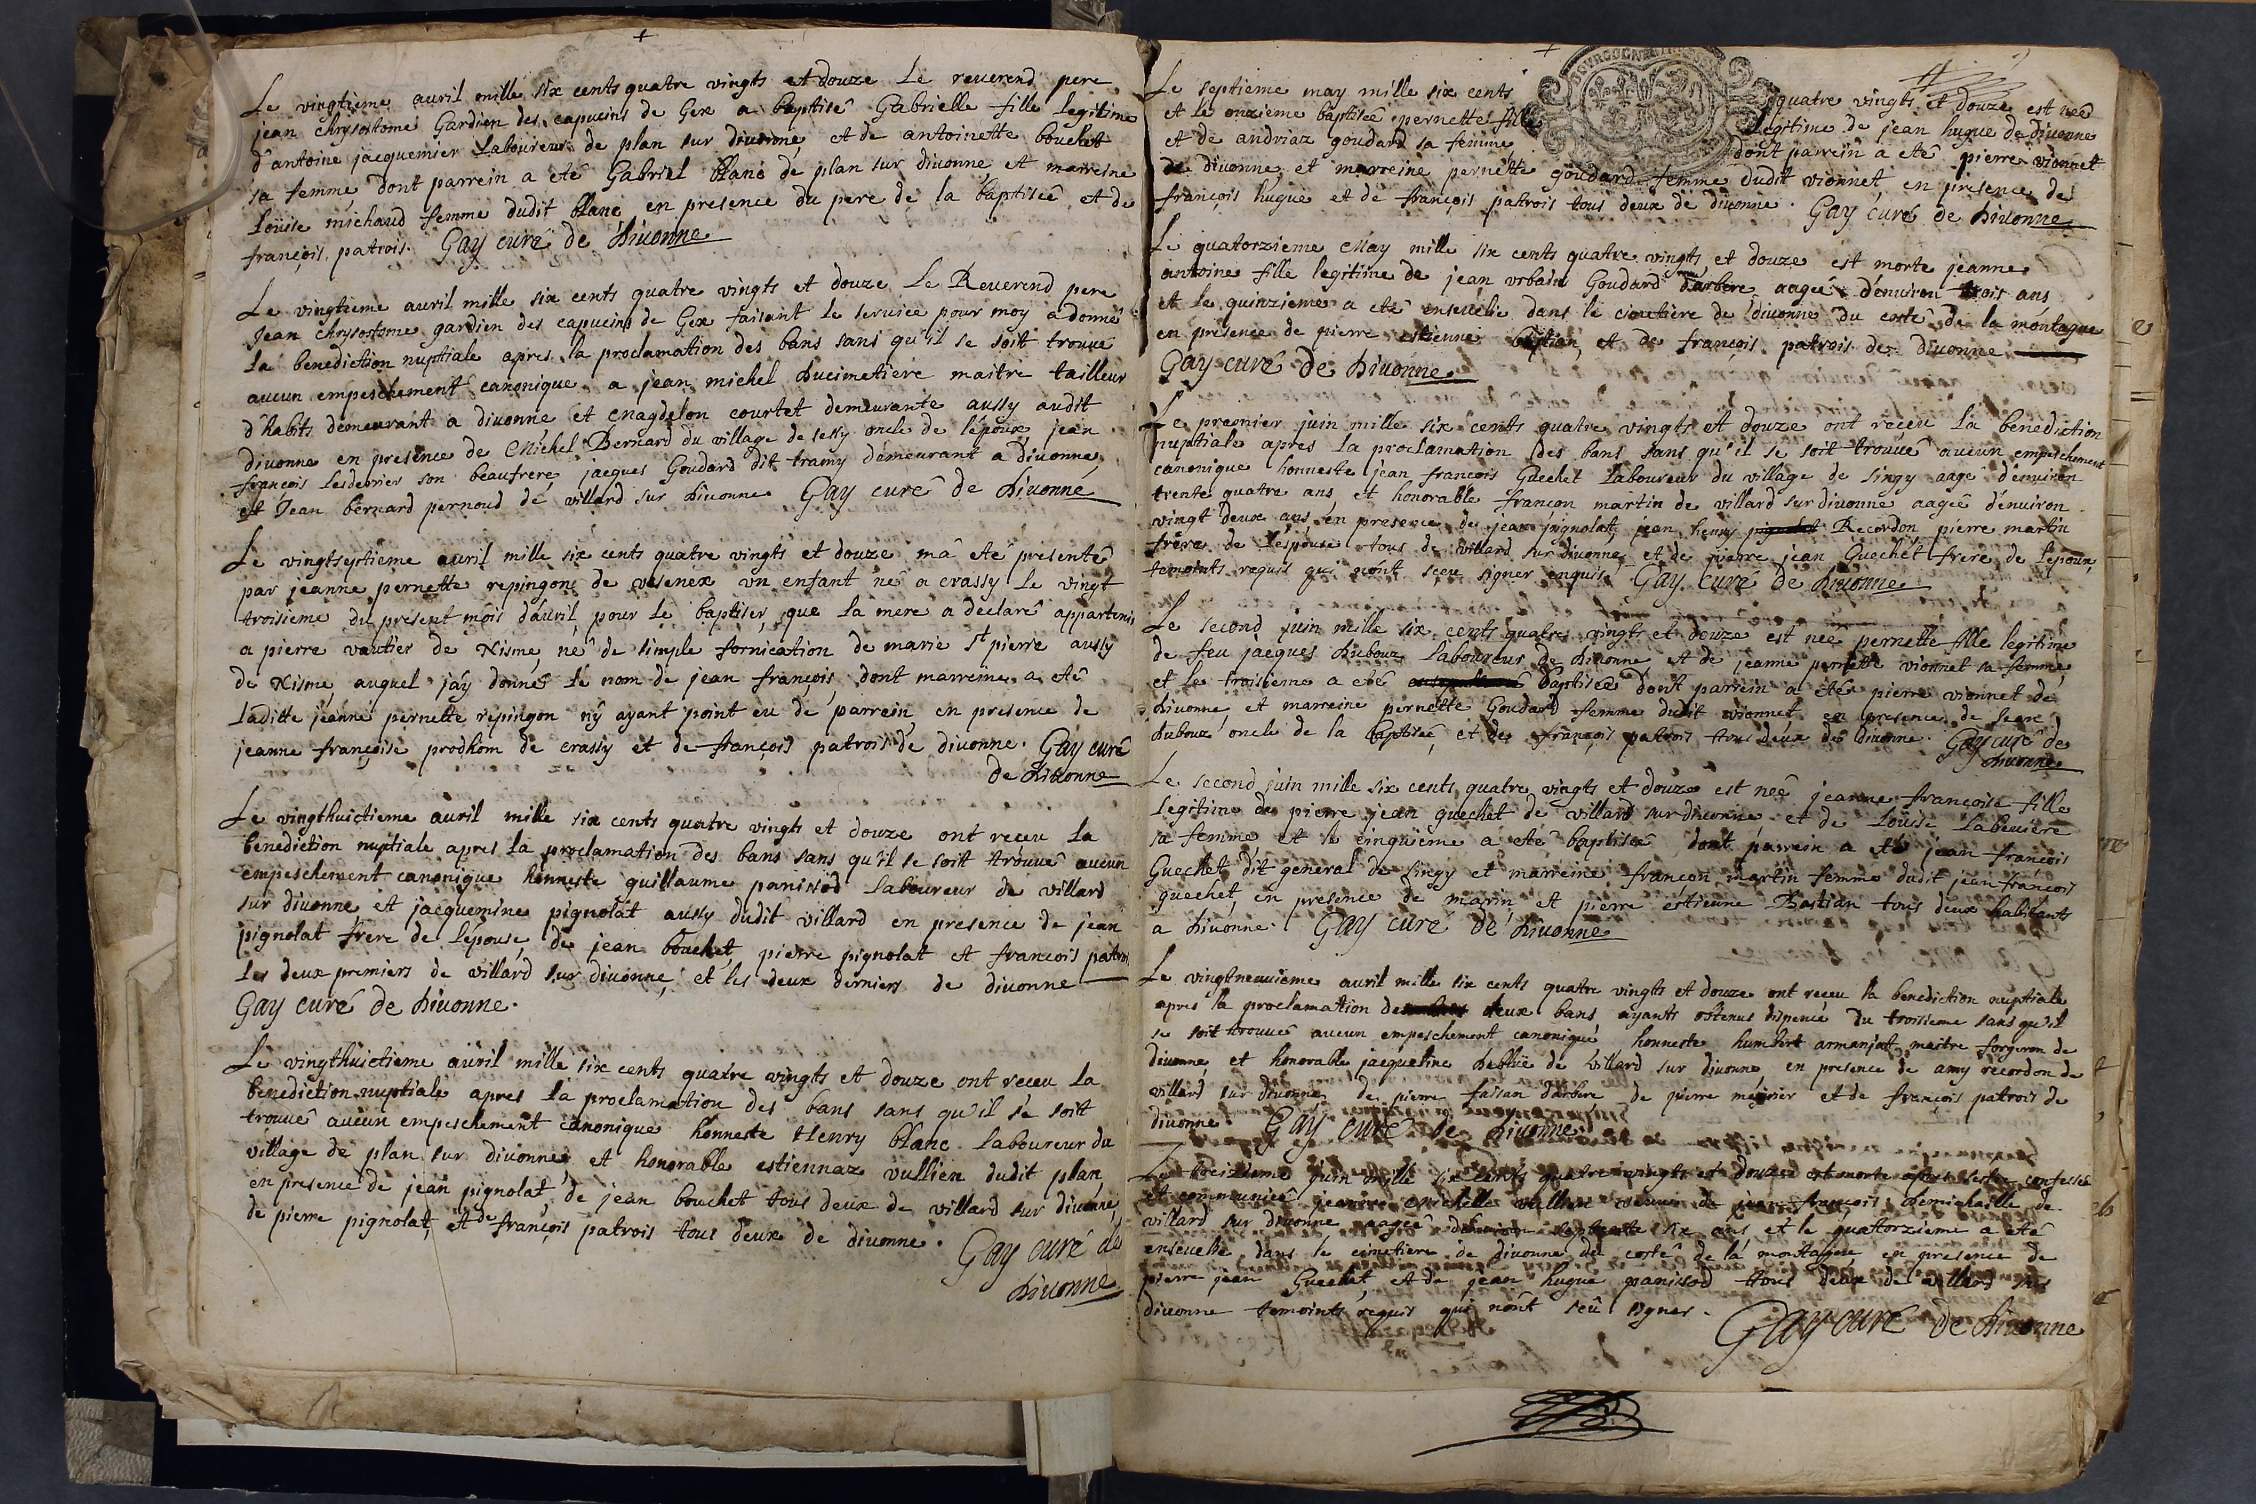 Le vingtieme avril mille six cents quatre vingts et douze Le reuerend pere
jean chrysostome Gardien des capucins de Gex a baptisé Gabrielle fille legitime
d'antoine jacquemier Laboureur de plan sur diuonne et de antoinette bouchet
sa femme dont parrein a eté Gabriel blanc de plan sur diuonne et marreine
Loüise michaud femme dudit blanc en presence du pere de la baptisée et de
françois patrois. Gay curé de Diuonne
Le vingtieme auril mille six cents quatre vingts et douze Le Reuerend pere
Jean chrysostome gardien des capucins de Gex faisant le seruice pour moy a donné
La benediction nuptiale apres la proclamation des bans sans qu'il se soitt trouué
aucun empeschement canonique a jean michel Ducimetiere maitre tailleur
d'habits demeurant a diuonne et Magdelon courtet demeurante aussy audit
diuonne en presence de Michel Bernard du village de sessy oncle de l'époux, jean
françois Lesderrier son beaufrere jacques Goudard dit tramy demeurant a Diuonne
et Jean bernard pernoud de villard sur diuonne Gay curé de Diuonne
Le vingtseptieme auril mille six cents quatre vingts et douze m'a eté presenté
par jeanne pernette repingon de vesenex vn enfant né a crassy Le vingt
troisieme du present mois d'auril pour le baptiser, que la mere a declaré appartenir
a pierre vautier de Nisme, né de simple fornication de marie st pierre aussy
de Nisme, auquel j'ay donné le nom de jean françois, dont marreine a eté
laditte jeanne pernette repingon n'y ayant point eu de parrein en presence de
jeanne françoise prodhom de crassy et de françois patrois de diuonne. Gay curé
de Diuonne
Le vingthuictieme auril mille six cents quatre vingts et douze ont receu La
benediction nuptiale apres la proclamation des bans sans qu'il se soitt trouué aucun
empeschement canonique honneste guillaume panissod Laboureur de villard
sur diuonne et jacquemine pignolat aussy dudit villard en presence de jean
pignolat frere de l'épouse, de jean bouchet, pierre pignolat et françois patrois
Les deux premiers de villard sur diuonne, et les deux derniers de diuonne
Gay curé de Diuonne.
Le vingthuictieme auril mille six cents quatre vingts et douze ont receu La
benediction nuptiale apres la proclamation des bans sans qu'il se soitt
trouué aucun empeschement canonique honneste Henry blanc Laboureur du
village de plan sur diuonne, et honorable estiennaz vullien dudit plan,
en presence de jean pignolat, de jean bouchett tous deux de villard sur diuonne,
de pierre pignolat, et de françois patrois tous deux de diuonne. Gay curé de
Diuonne
Le septieme may mille six cents quatre vingts et douze est née
et le onzieme baptisée pernette fille legitime de jean hugue de diuonne
et de andriaz goudard sa femme dont parrein a eté pierre vionnet
de Diuonne et marreine pernette goudard femme dudit vionnet en presence de
françois hugue et de françois patrois tous deux de diuonne. Gay curé de Diuonne
Le quatorzieme May mille six cents quatre vingts et douze est morte jeanne
antoine fille legitime de jean vrbain Goudard d'arbere aagée d'enuiron trois ans
et le quinzieme a eté enseuelie dans le cimetiere de diuonne du costé de la montagne
en presence de pierre estienne bastian, et de françois patrois de diuonne
Gay curé de Diuonne
Le premier juin mille six cents quatre vingts et douze ont receu La benediction
nuptiale apres la proclamation des bans sans qu'il se soit trouué aucun empeschement
canonique honneste jean françois Guechet Laboureur du village de singy aagé d'enuiron
trente quatre ans, et honorable françon martin de villard sur diuonne aagée d'enuiron
vingt deux ans en presence de jean pignolat, jean henry Recordon pierre martin
frere de l'espouse tous de villard sur diuonne, et de pierre jean Guechet frere de l'epoux,
temoints requis qui n'ont sceu signer enquis. Gay curé de Diuonne
Le second juin mille six cents quatre vingts et douze est née pernette fille legitime
de feu jacques Dubouz Laboureur de diuonne et de jeanne pernette vionnet sa femme,
et le troisieme a eté baptisée dont parrein a eté pierre vionnet de
diuonne et marreine pernette Goudard femme dudit vionnet, en presence de
Dubouz oncle de la baptisée, et de françois patrois tous deux de diuonne. Gay curé de
Diuonne
Le second juin mille six cents quatre vingts et douze est née jeanne françoise fille
Legitime de pierre jean guechet de villard sur diuonne, et de Loüise
sa femme et le cinquieme a eté baptisée dont parrein a eté jean françois
Guechet dit general de singy et marreine françon martin femme dudit jean françois
guechet, en presence de marin et pierre estienne Bastian tous deux habitants
a Diuonne. Gay curé de Diuonne
Le vingtneuuieme avril mille six cents quatre vingts et douze ont receu la benediction nuptiale
apres la proclamation de deux bans ayants obtenus dispence du troisieme sans qu'il
se soit trouué aucun empeschement canonique, honneste humbert armanjat maitre forgeron de
diuonne, et honorable jacqueline de villard sur diuonne, en presence de amy recordon de
villard sur diuonne, de pierre d'arbere de pierre et de françois patrois de
diuonne. Gay curé de Diuonne
Le treizieme juin mille six cents quatre vingts et douze est morte apres s'estre confessée
et communiée jeanne michelle vullien veuue de jean françois de
villard sur diuonne aagée d'enuiron six ans, et le quattorzieme a eté
enseuelie dans le cimetiere de diuonne du costé de la montagne, en presence de
pierre jean Guechet, et de jean hugue panissod tous deux de villard sur
diuonne temoints requis qui n'ont sceû signer. Gay curé de Diuonne